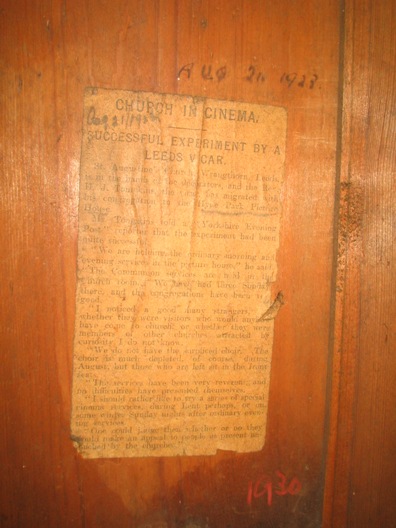 AUG 21 1928.
CHURCH IN CINEMA.
SUCCESSFUL EXPERIMENT BY A
LEEDS VICAR.
St. Augustine's Wrangthorn, Leeds,
is in the hands of the decorators, and the Rev.
has migrated with
his congregation to the Hyde Park Picture
House.
told a "Yorkshire Evening
Post" reporter that the experiment had been
quite successful.
"We are holding the ordinary morning and
evening services in the picture house," he said.
"The Communion services are held in the
Church Room. We have had three Sundays
there, and the congregations have been very
good.
"I noticed a good many strangers,
whether they were visitors who would anyhow
have come to church or whether they were
members of other churches attracted by
curiosity I do not know.
"We do not have the surpliced choir. The
choir is much depleted, of course, during
August, but those who are left sit in the front
seats.
"The services have been very reverent, and
no difficulties have presented themselves.
"I should rather like to try a series of special
cinema services, during Lent perhaps, or on
some winter Sunday nights after ordinary evening
services.
"One could judge then whether or no they
would make an appeal to people at present un-
touched by the churches."
1930